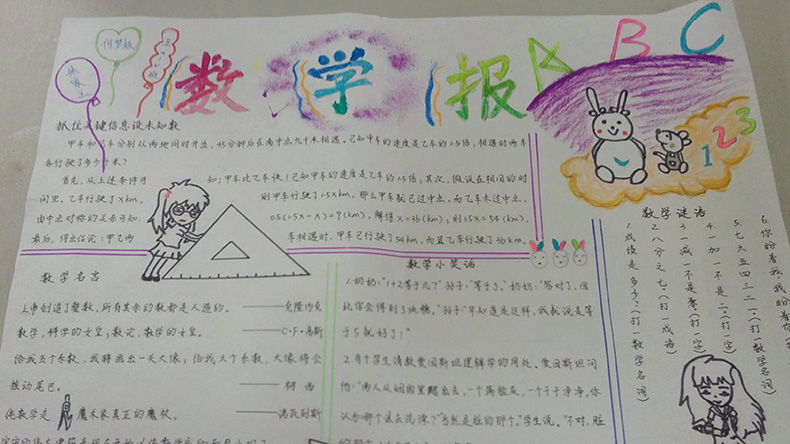 数学报
ABC
123
何梦妮
抓住关键信息设未知数
甲车和乙车分别从两地同时开出,45分钟后在离中点九千米相遇。已知甲车的速度是乙车的1.5倍,相遇时两车
各行驶了多少千米?
首先,从上述条件可
知:甲车比乙车快!已知甲车的速度是乙车的1.5倍,其次,假设在相同的时
间里,乙车行驶了Xkm,
则甲车行驶了1.5Xkm,那么甲车就已过中点,而乙车未过中点,
由中点对称的关系可知:
0.5(1.5X-X)=9(km),解得X=36(km),则1.5X=54(km),
最后,得出结论:甲乙两
车相遇时,甲车已行驶了54km,而且乙车行驶了36km。
数学名言
上帝创造了整数,所有其余的数都是人造的。
——克隆内克
数学,科学的女皇;数论,数学的女皇。
——C·F·高斯
给我五个系数,我将画出一头大像;给我六个系数,大像将会
摇动尾巴。
——柯西
纯数学是 魔术家真正的魔杖。
——诺瓦列斯
数学小笑话
1.奶奶:“1+2等于几?”孙子:“等于3。”奶奶:“答对了,因
此你会得到3块糖。”孙子:“早知道是这样,我就说是等
于5就好了!”
2.有个学生请教爱因斯坦逻辑学的用处。爱因斯坦问
他:“两人从烟囱里爬出去,一个满脸灰,一个干干净净,你
认为哪个该去洗澡?”“当然是脏的那个。”学生说。“不对,脏
数学谜语
1.成绩是多少?(打一数学名词)
2.八分之七?(打一成语)
3.一减一不是零(打一字)
4.一加一不是二?(打一字)
5.七六五四三二一?(打一数学名词)
6.你盼着我,我盼着你